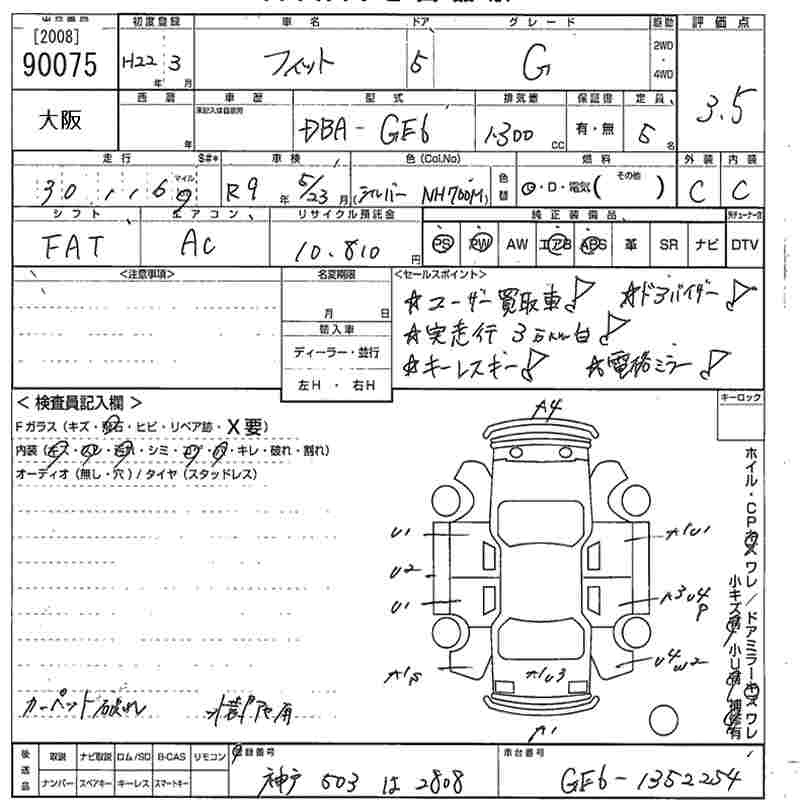 [2008]
90075
大阪
初度登録
H22 3
年 月
車 名
フィット
ドア
5
グ レ ー ド
G
駆動
2WD
・
4WD
評 価 点
3.5
西 暦
年
車 歴
未記入は自家用
型 式
DBA - GE6
排 気 量
1300
CC
保 証 書
有・無
定 員
5
名
走 行
30,169
マイル
$#*
車 検
R9 年 5/23 月
色 (Col.No)
シルバー NH700M
色替
燃 料
・D・電気( その他 )
外 装
C
内 装
C
シ フ ト
FAT
エ ア コ ン
AC
リサイクル預託金
10,810
円
純 正 装 備 品
PS PW AW エアB ABS 革 SR ナビ DTV
<注意事項>
名変期限
月 日
輸入車
ディーラー・並行
左H ・ 右H
<セールスポイント>
☆ユーザー買取車♪ ☆ドアバイザー♪
☆実走行 3万km台♪
☆キーレスキー♪ ☆電格ミラー♪
< 検査員記入欄 >
Fガラス (キズ・飛石・ヒビ・リペア跡・X要)
内装 (キズ・スレ・汚れ・シミ・コゲ・穴・キレ・破れ・割れ)
オーディオ (無し・穴) / タイヤ (スタッドレス)
キーロック
A4
U1
A1U1
U2
U1
A3U4
P
A1P
A1U3
U4W2
A1
ホイル・CPキズワレ/ドアミラーキズワレ
小キズ有 小U有 補修有
カーペット破れ
後送品
取説 ナビ取説 ロム/SD B-CAS リモコン
ナンバー スペアキー キーレス スマートキー
登録番号
神戸 503 は 2808
車台番号
GE6-1352254